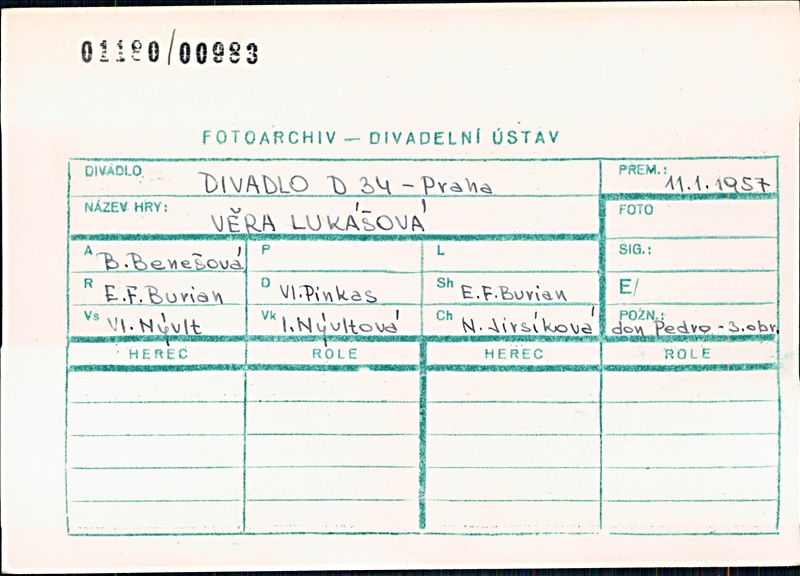 01180/00983
FOTOARCHIV — DIVADELNÍ ÚSTAV
DIVADLO DIVADLO D 34 – Praha PREM.: 11.1.1957
NÁZEV HRY: VĚRA LUKÁŠOVÁ FOTO
A B. Benešová P L SIG.:
R E.F. Burian D Vl. Pinkas Sh E.F. Burian E/
Vs Vl. Nývlt Vk I. Nývltová Ch N. Jirsíková POZN.: don Pedro - 3. obr.
HEREC ROLE HEREC ROLE